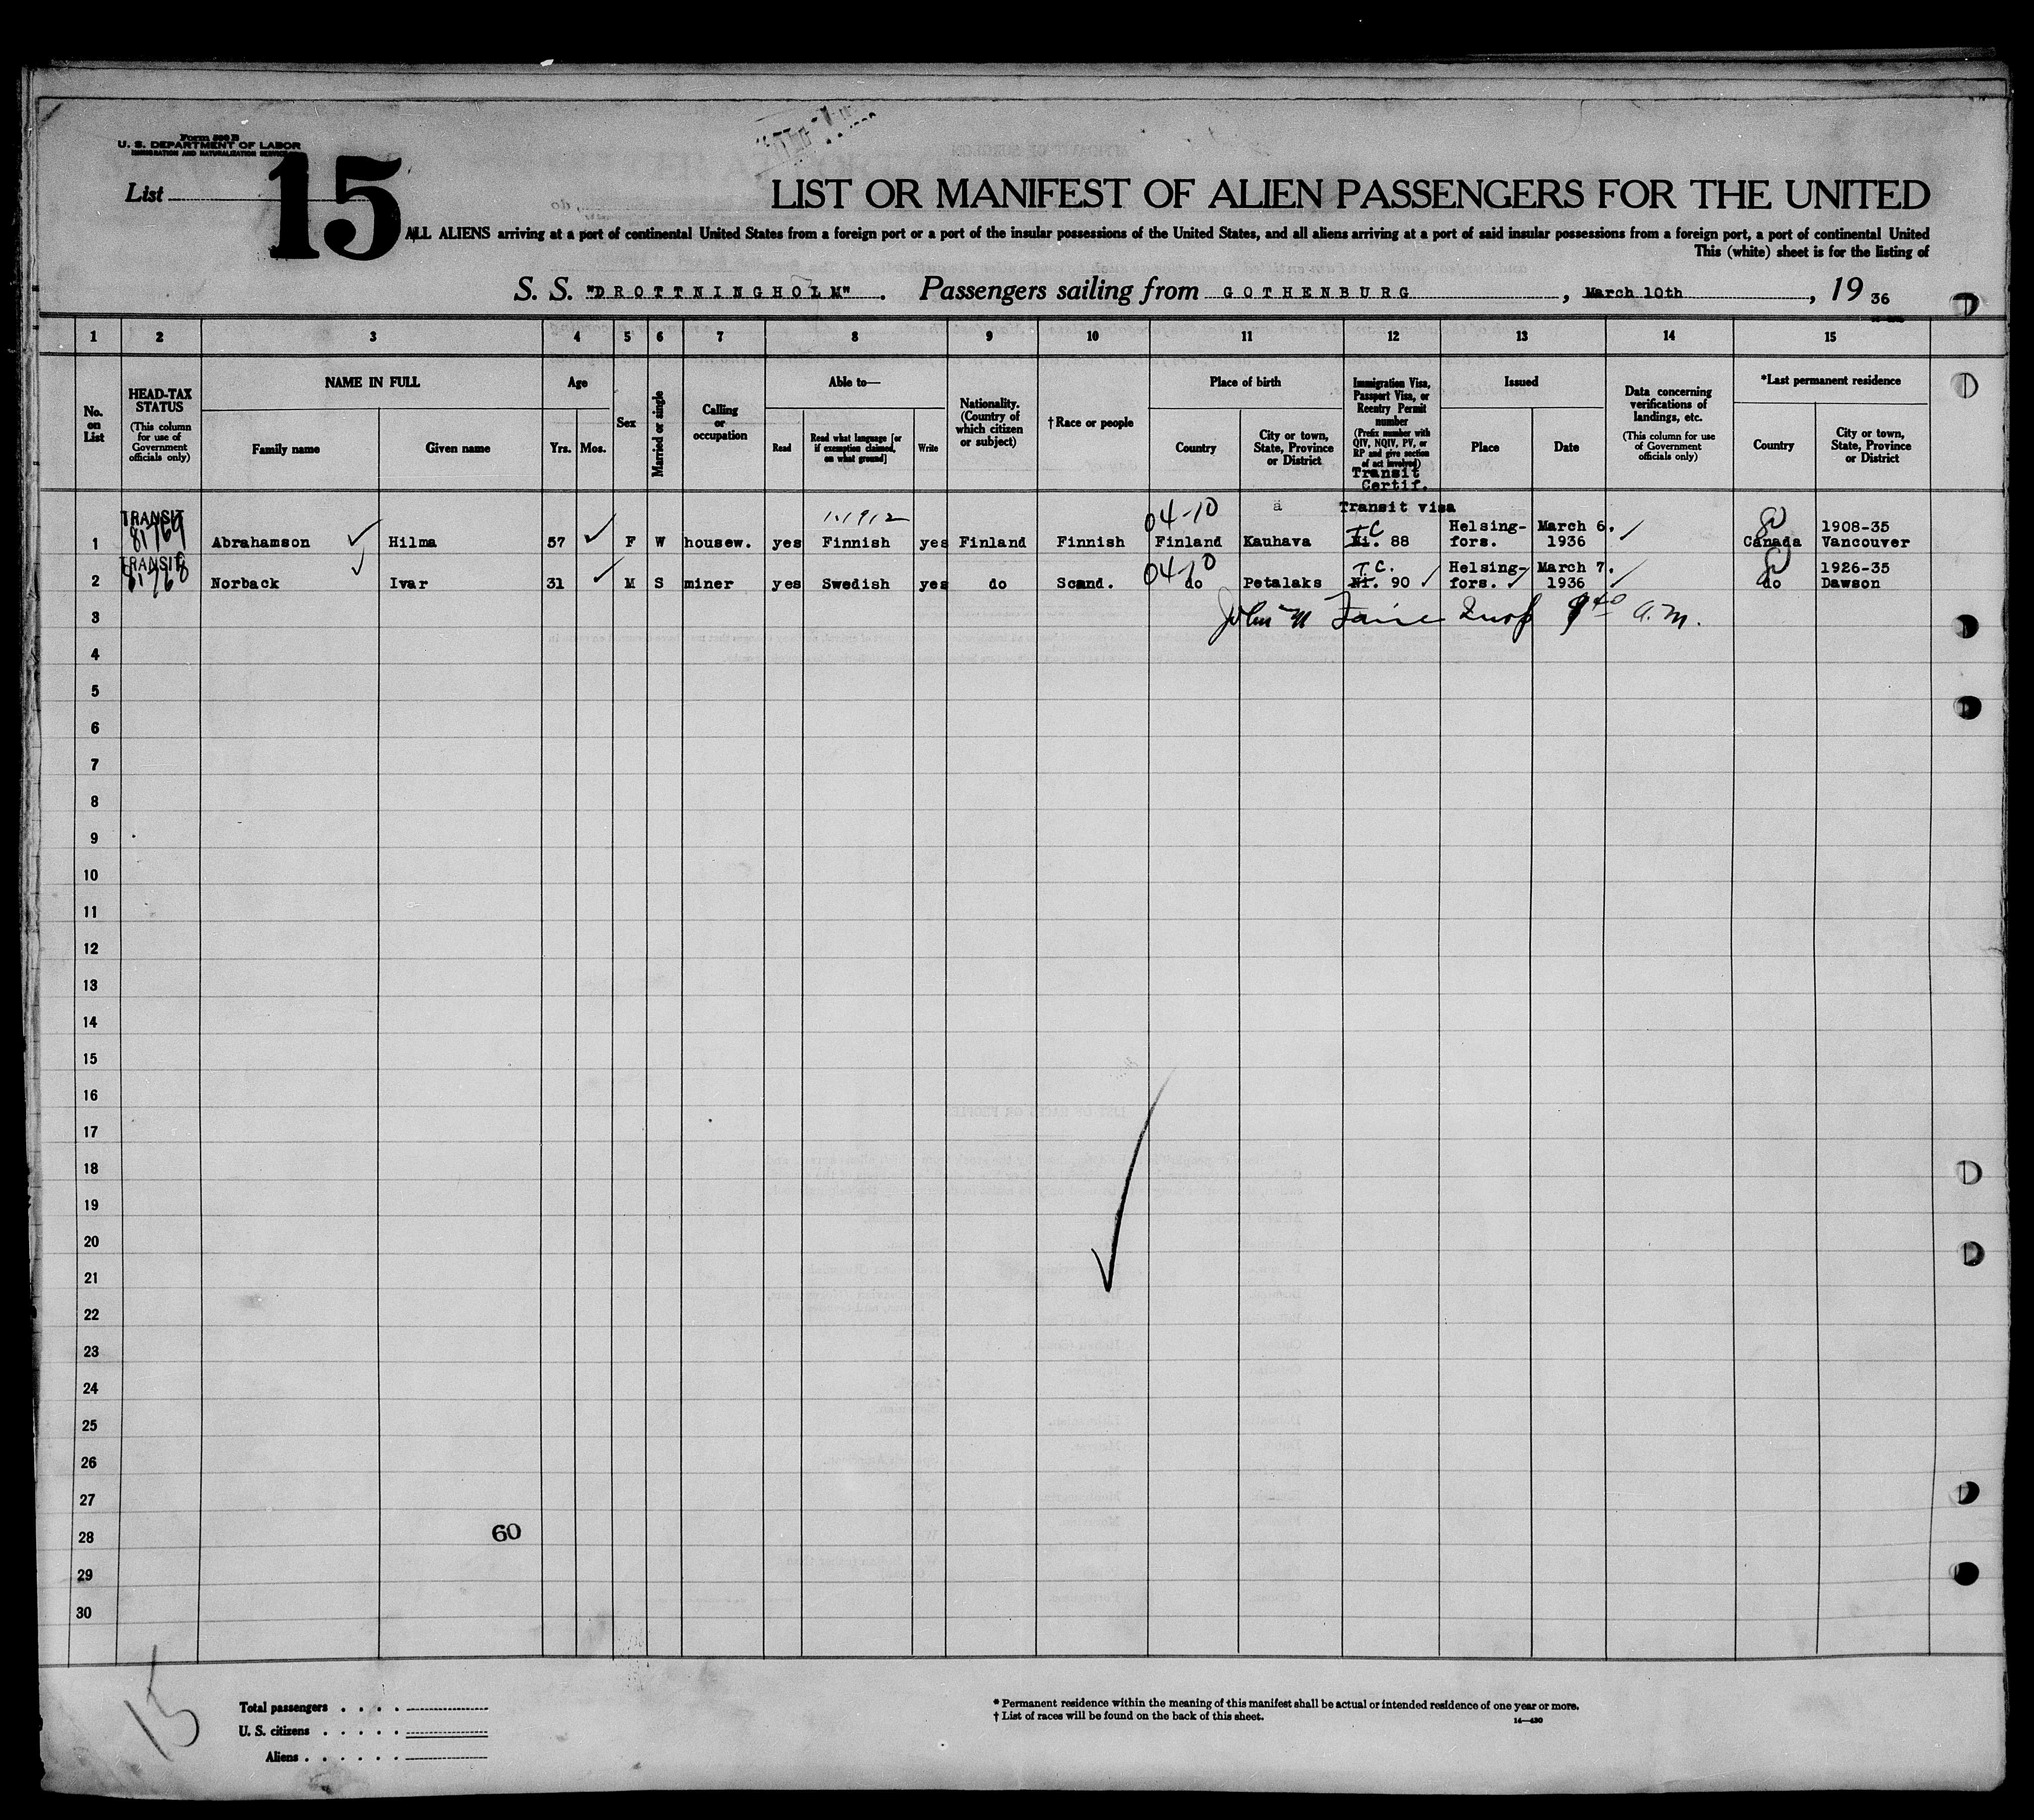 Form 500 B
U. S. DEPARTMENT OF LABOR
IMMIGRATION AND NATURALIZATION SERVICE
List 15
LIST OR MANIFEST OF ALIEN PASSENGERS FOR THE UNITED
ALL ALIENS arriving at a port of continental United States from a foreign port or a port of the insular possessions of the United States, and all aliens arriving at a port of said insular possessions from a foreign port, a port of continental United
This (white) sheet is for the listing of
S. S. "DROTTNINGHOLM". Passengers sailing from GOTHENBURG, March 10th, 19 36
1 2 3 4 5 6 7 8 9 10 11 12 13 14 15
No. on List
HEAD-TAX STATUS
(This column for use of Government officials only)
NAME IN FULL
Family name
Given name
Age
Yrs. Mos.
Sex
Married or single
Calling or occupation
Able to—
Read
Read what language [or if exemption claimed, on what ground]
Write
Nationality. (Country of which citizen or subject)
†Race or people
Place of birth
Country
City or town, State, Province or District
Immigration Visa, Passport Visa, or Reentry Permit number
(Prefix number with QIV, NQIV, PV, or RP and give section of act involved)
Transit Certif.
Issued
Place
Date
Data concerning verifications of landings, etc.
(This column for use of Government officials only)
*Last permanent residence
Country
City or town, State, Province or District
TRANSIT 04-10 ä Transit visa
81769 T C Helsing- March 6. 1908-35
1 Abrahamson Hilma 57 F W housew. yes Finnish yes Finland Finnish Finland Kauhava Ni. 88 fors. 1936 Canada Vancouver
TRANSIT 04-10 T.C. Helsing- March 7. 1926-35
81768
2 Norback Ivar 31 M S miner yes Swedish yes do Scand. do Petalaks Ni. 90 fors. 1936 do Dawson
3 John a.m.
4
5
6
7
8
9
10
11
12
13
14
15
16
17
18
19
20
21
22
23
24
25
26
27
28 60
29
30
15
Total passengers
U. S. citizens
Aliens
* Permanent residence within the meaning of this manifest shall be actual or intended residence of one year or more.
† List of races will be found on the back of this sheet.
14—430